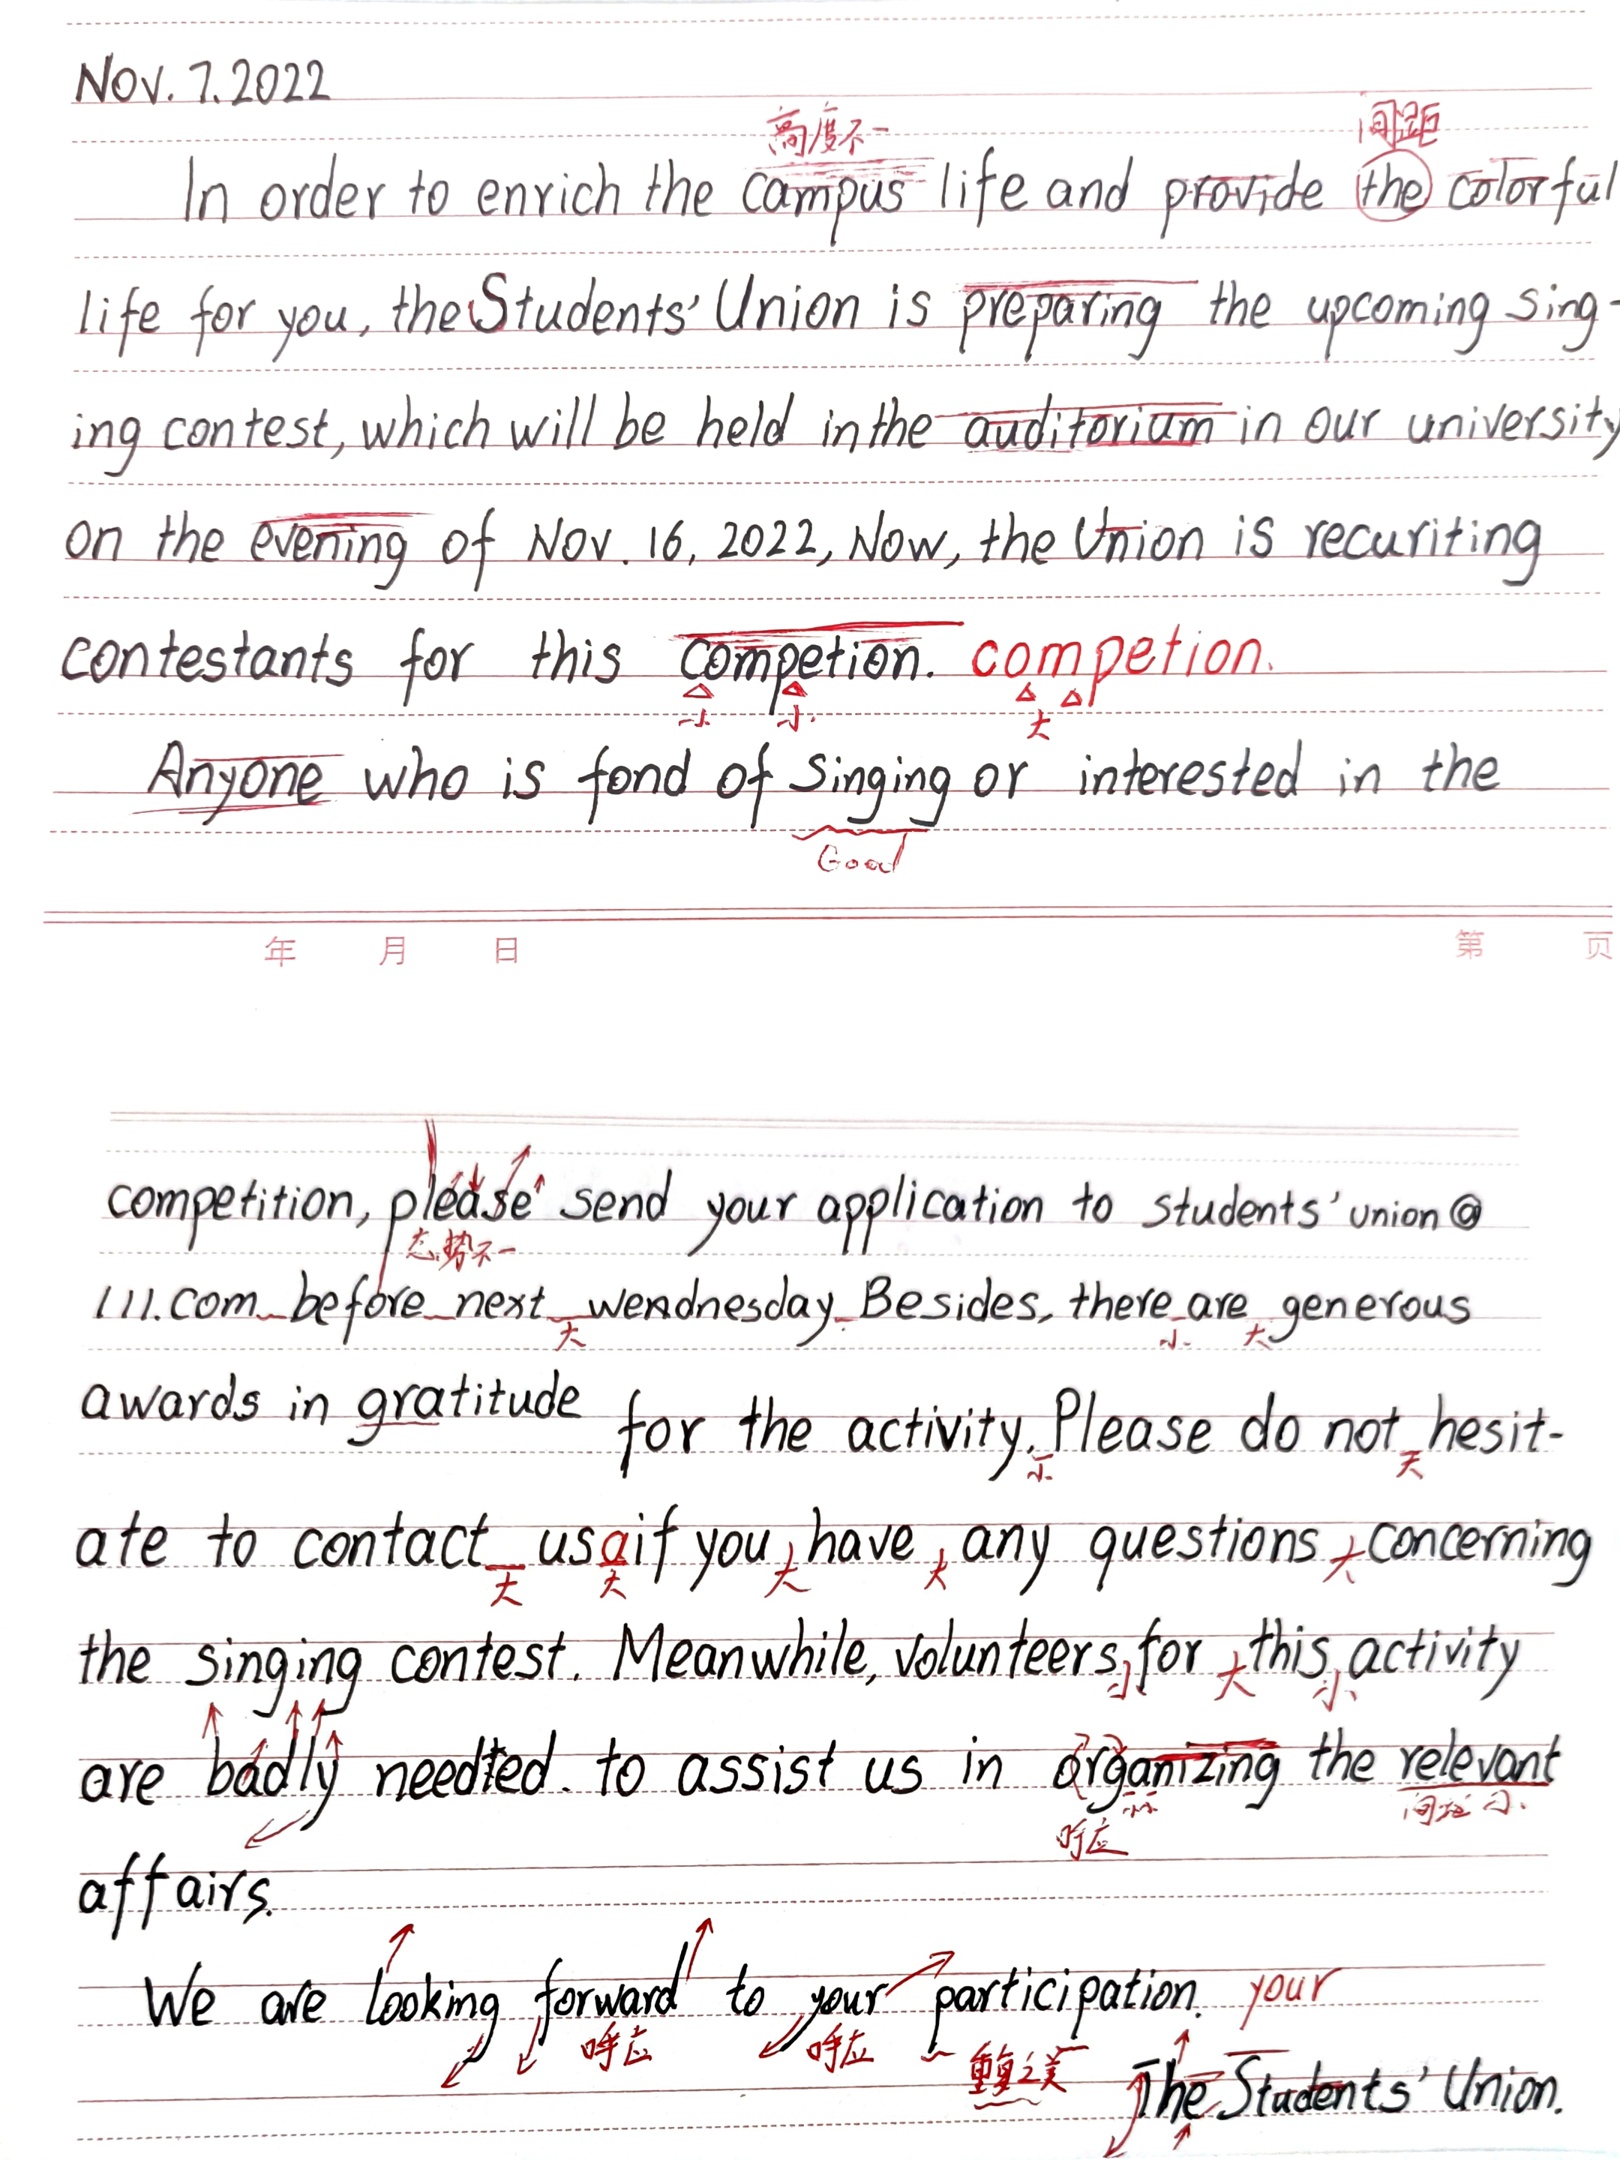 Nov. 7. 2022
高度不一 间距
In order to enrich the campus life and provide the colorful
life for you, the Students' Union is preparing the upcoming sing-
ing contest, which will be held in the auditorium in our university
on the evening of Nov. 16, 2022, Now, the Union is recuriting
contestants for this competion. competion.
小 小. 大
Anyone who is fond of singing or interested in the
Good
年 月 日 第 页
competition, please send your application to students' union@
态势不一
111.com before next wendnesday Besides, there are generous
大 小. 大
awards in gratitude for the activity. Please do not hesit-
小. 大
ate to contact us a if you have any questions concerning
大 大 大 大 大
the singing contest. Meanwhile, volunteers for this activity
小 大 小
are badly needted. to assist us in organizing the relevant
小小 间距小.
呼应
affairs.
We are looking forward to your participation. your
呼应 呼应 重复之美
The Students' Union.